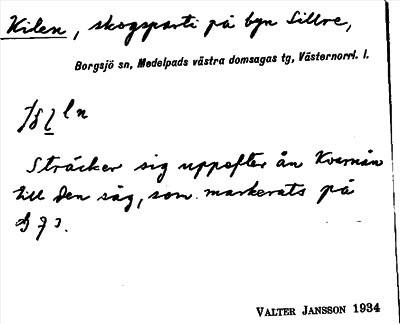 Kilen, skogsparti på byn Sillre,
Borgsjö sn, Medelpads västra domsagas tg, Västernorrl. l.
Sträcker sig uppefter ån Kvarnån
till den såg, som markerats på